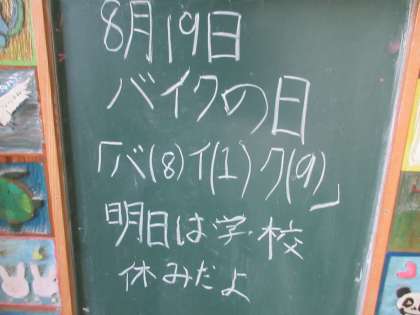 8月19日
バイクの日
「バ(8)イ(1)ク(9)」
明日は学校
休みだよ